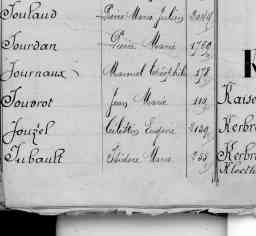 Joulaud Pierre Marie Julien
Jourdan Pierre Marie 1760
Journaux Manuel Théophile 178
Jouvrot Jean Marie 119
Jouzel Célestin Eugène 2149
Jubault Isidore Marie 255
K
Kaise
Kerbr
Kerbr
Kloeth